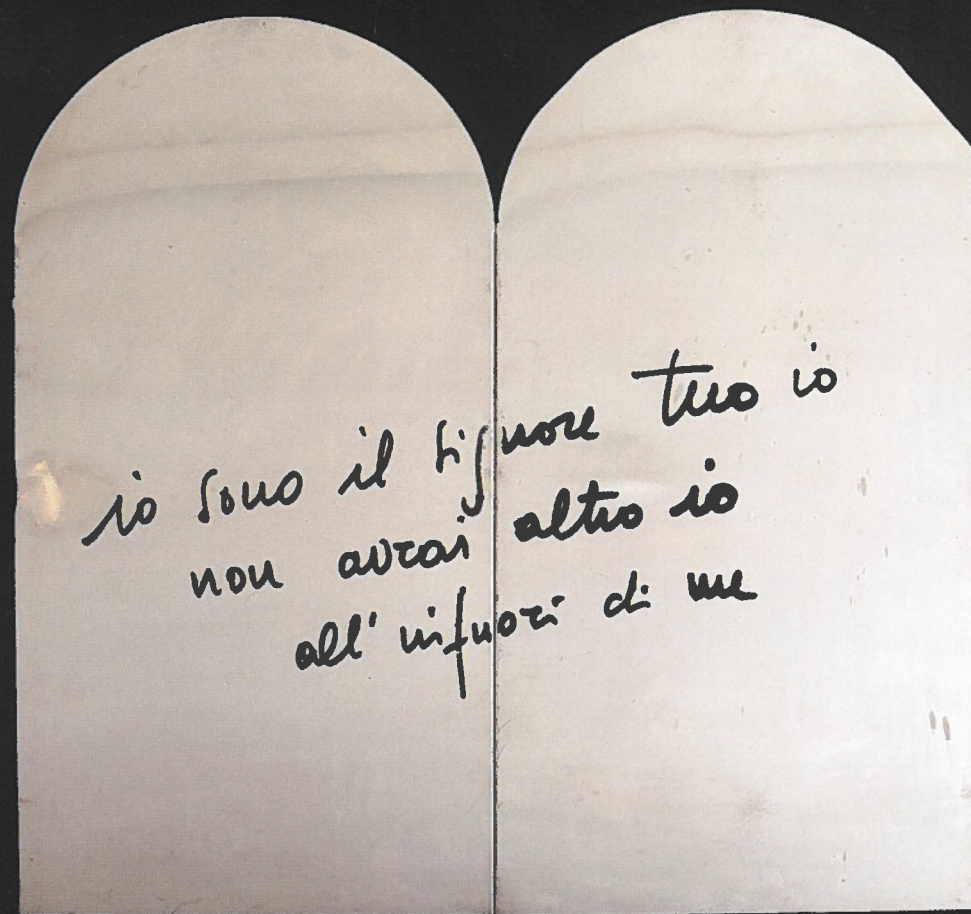 io sono il signore tuo io
non avrai altro io
all'infuori di me